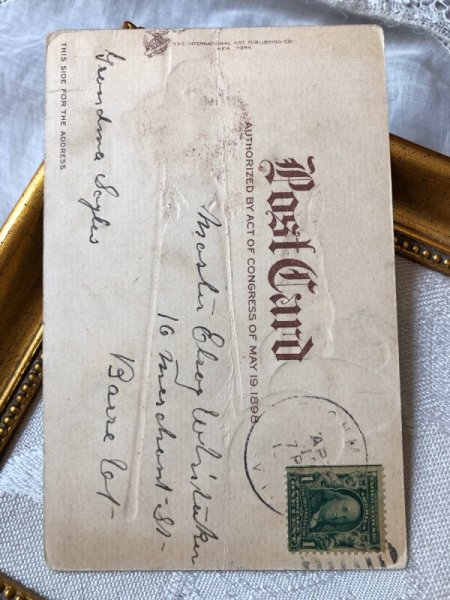 THE INTERNATIONAL ART PUBLISHING CO.
NEW YORK
Post Card
AUTHORIZED BY ACT OF CONGRESS OF MAY 19, 1898
THIS SIDE FOR THE ADDRESS
Master Whitaker
16 Merchant St-
Barre Vt-
Grandma Sayles
AP
1
1